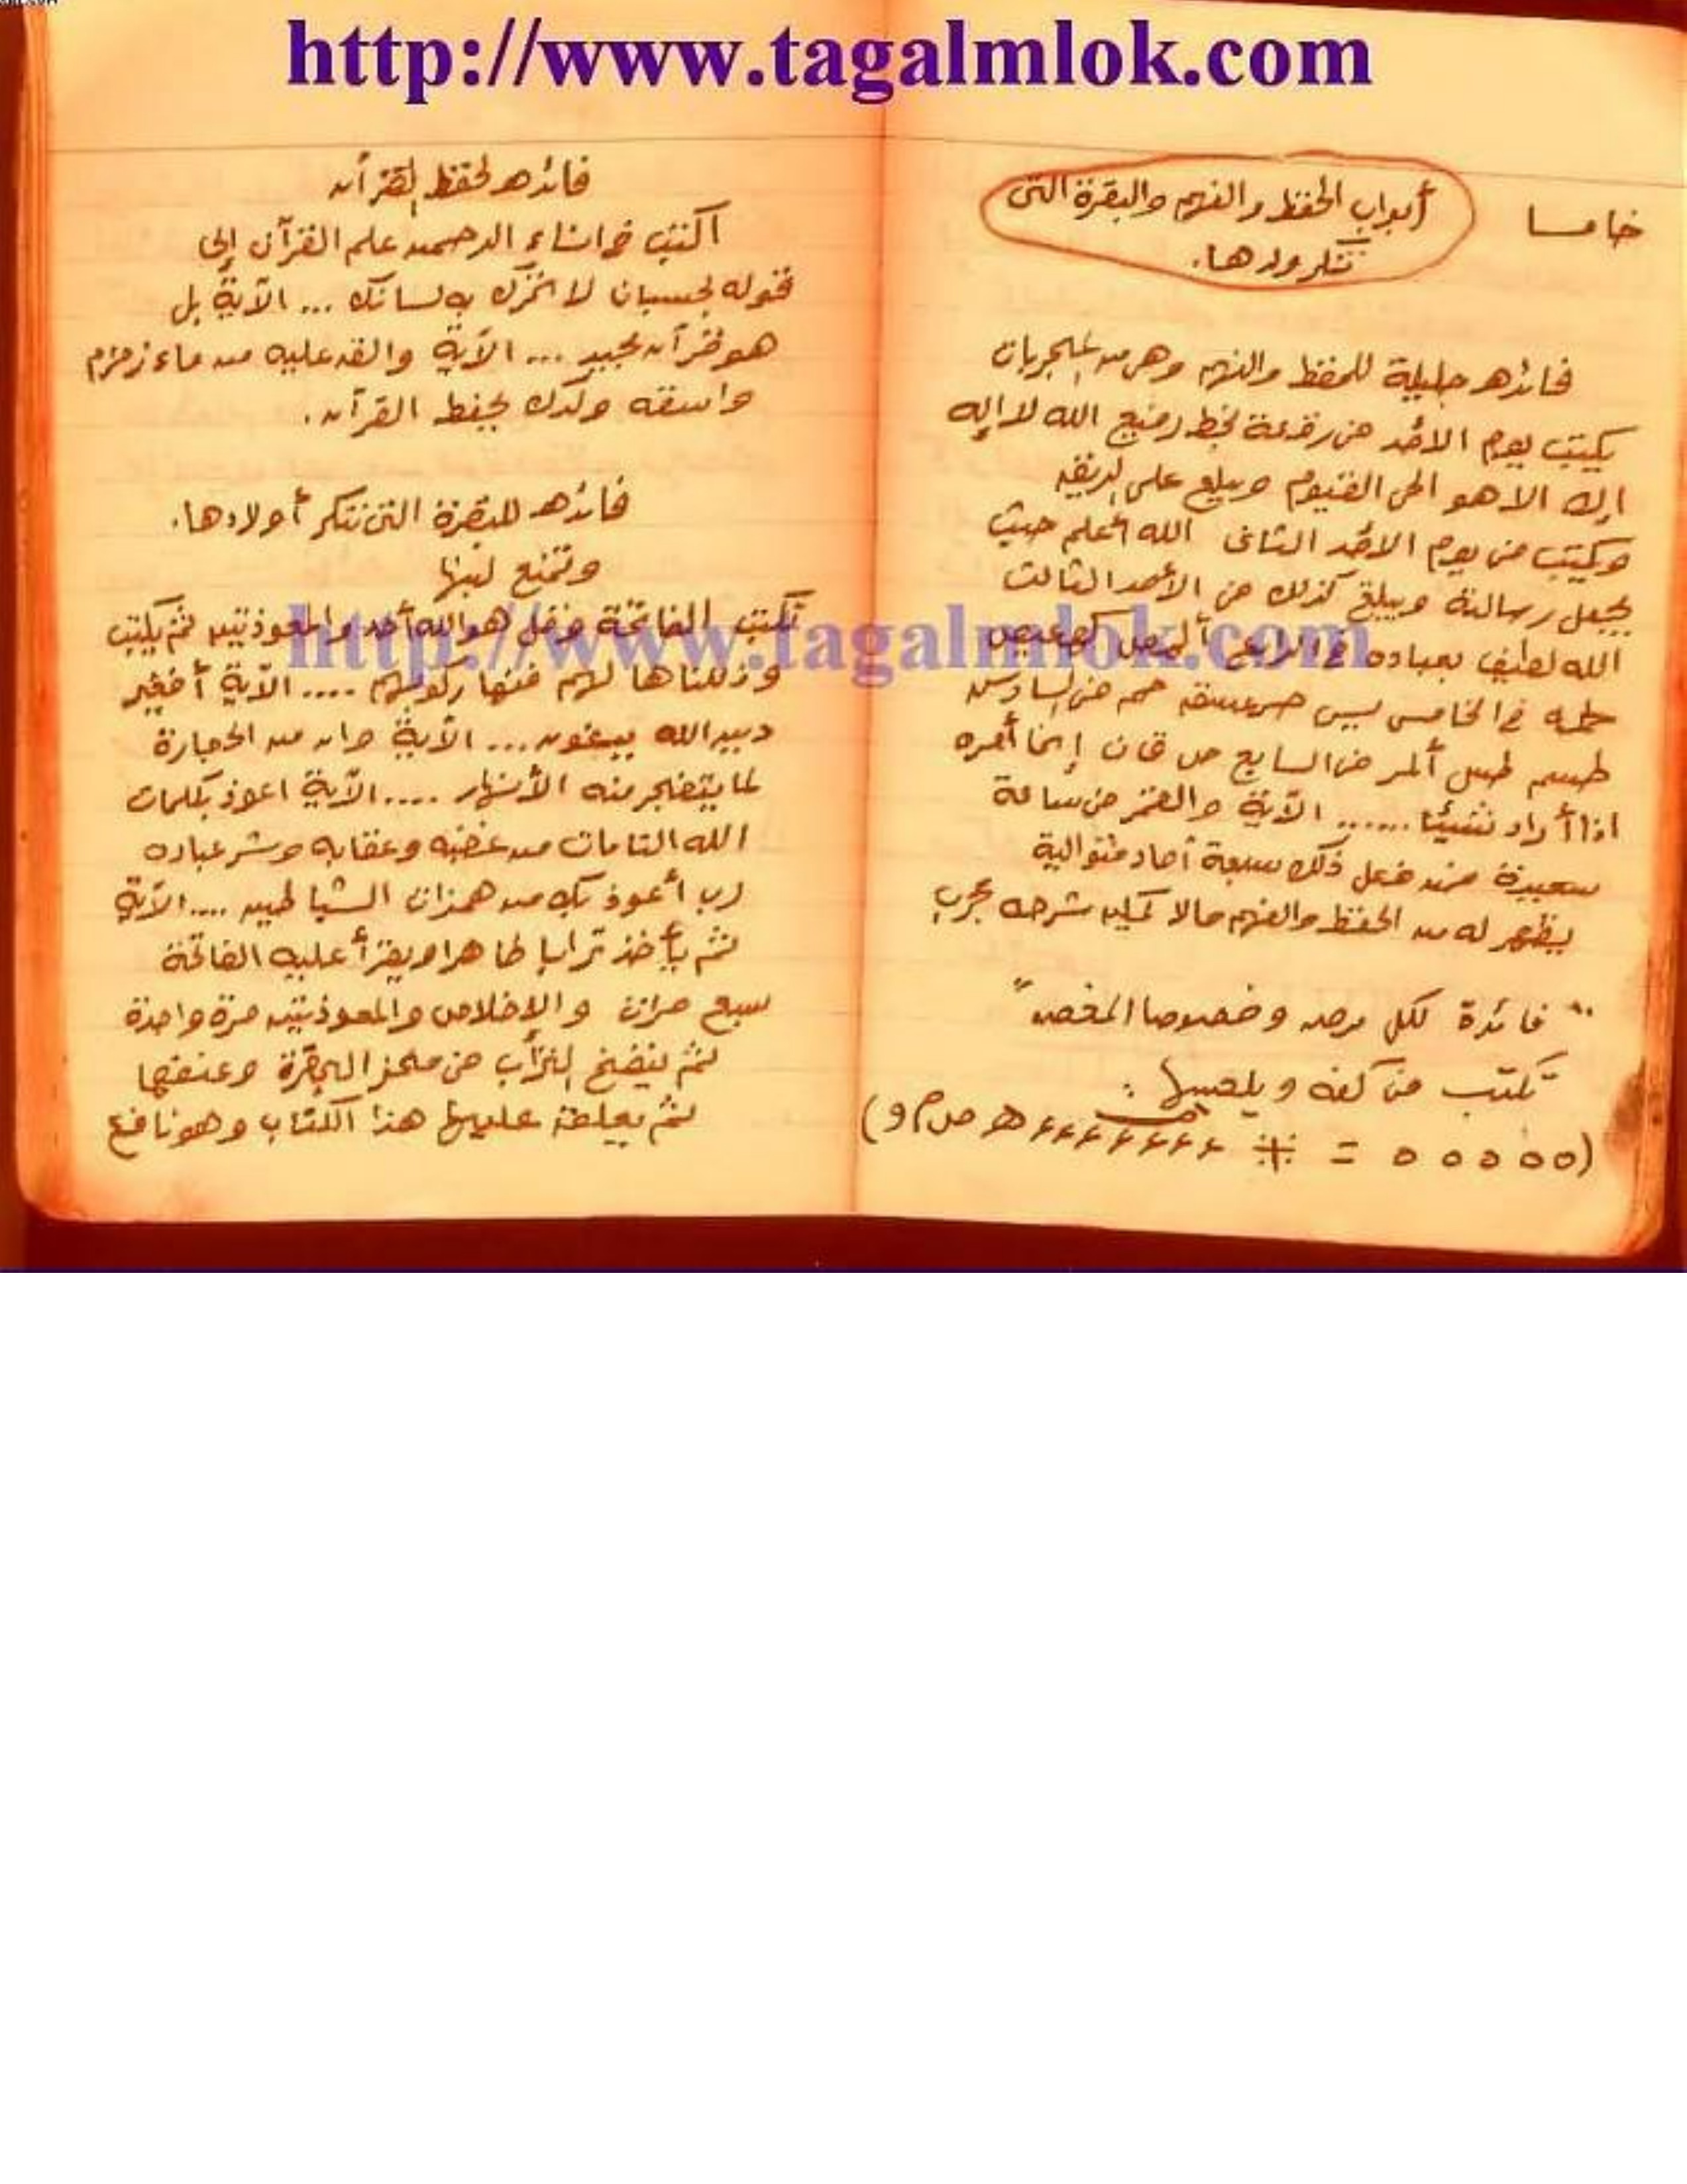 http://www.tagalmlok.com
خامسا
أبواب الحفظ والفهم والبقرة التى
تنكر ولدها.
فائده جليلة للحفظ والفهم وهى من المجربات
يكتب يوم الأحد فى رقعة بخط رفيع الله لا إله
إلا هو الحى القيوم ويبلع على الريق
ويكتب فى يوم الأحد الثانى الله أعلم حيث
يجعل رسالته ويبلع كذلك فى الأحد الثالث
الله لطيف بعباده فى الرابع ألمص كهيعص
طه فى الخامس يس حمعسق حم فى السادس
طسم طس ألمر فى السابع ص ق ن إنما أمره
اذا أراد شيئا ...... الآية والقمر فى ساعة
سعيدة فمن فعل ذلك سبعة أحاد متوالية
يظهر له من الحفظ والفهم مالا يمكن شرحه مجرب
" فائدة لكل مرض وخصوصا المغص "
تكتب فى كفه ويلحسها :
فائده لحفظ القرآن
اكتب فى إناء الرحمن علم القرآن إلى
قوله بحسبان لا تحرك به لسانك ... الآية بل
هو قرآن مجيد ... الآية والقه عليه من ماء زمزم
واسقه ولدك يحفظ القرآن.
فائده للبقرة التى تنكر أولادها.
وتمنع لبنها
تكتب الفاتحة وقل هو الله أحد والمعوذتين ثم يكتب
وذللناها لهم فمنها ركوبهم .... الآية أفغير
دين الله يبغون ... الآية وان من الحجارة
لما يتفجر منه الأنهار .... الآية اعوذ بكلمات
الله التامات من غضبه وعقابه وشر عباده
رب أعوذ بك من همزات الشياطين .... الآية
ثم يأخذ ترابا طاهرا ويقرأ عليه الفاتحة
سبع مرات والإخلاص والمعوذتين مرة واحدة
ثم ينفخ التراب فى منخر البقرة وعنقها
ثم يعلق عليها هذا الكتاب وهو نافع
http://www.tagalmlok.com